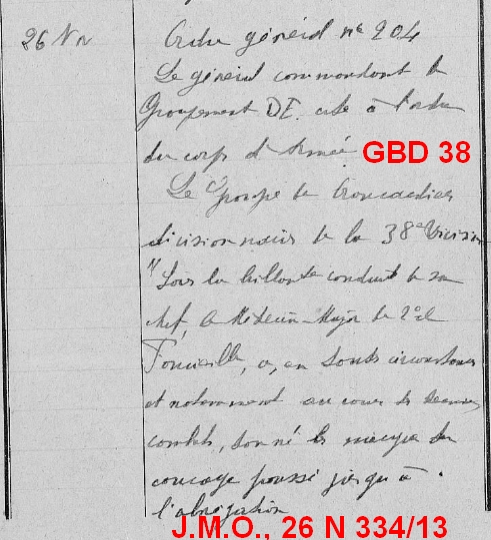 26 Nov Ordre général no 204
Le général commandant le
Groupement D.E. cite à l'ordre
du corps d'Armée GBD 38
Le Groupe de brancardiers
divisionnaires de la 38e Division
"Sous la brillante conduite de son
chef, le Médecin-Major de 2e cl
a, en toutes circonstances
et notamment au cours de
combats, donné les du
courage poussé jusqu'à
l'abnégation
J.M.O., 26 N 334/13